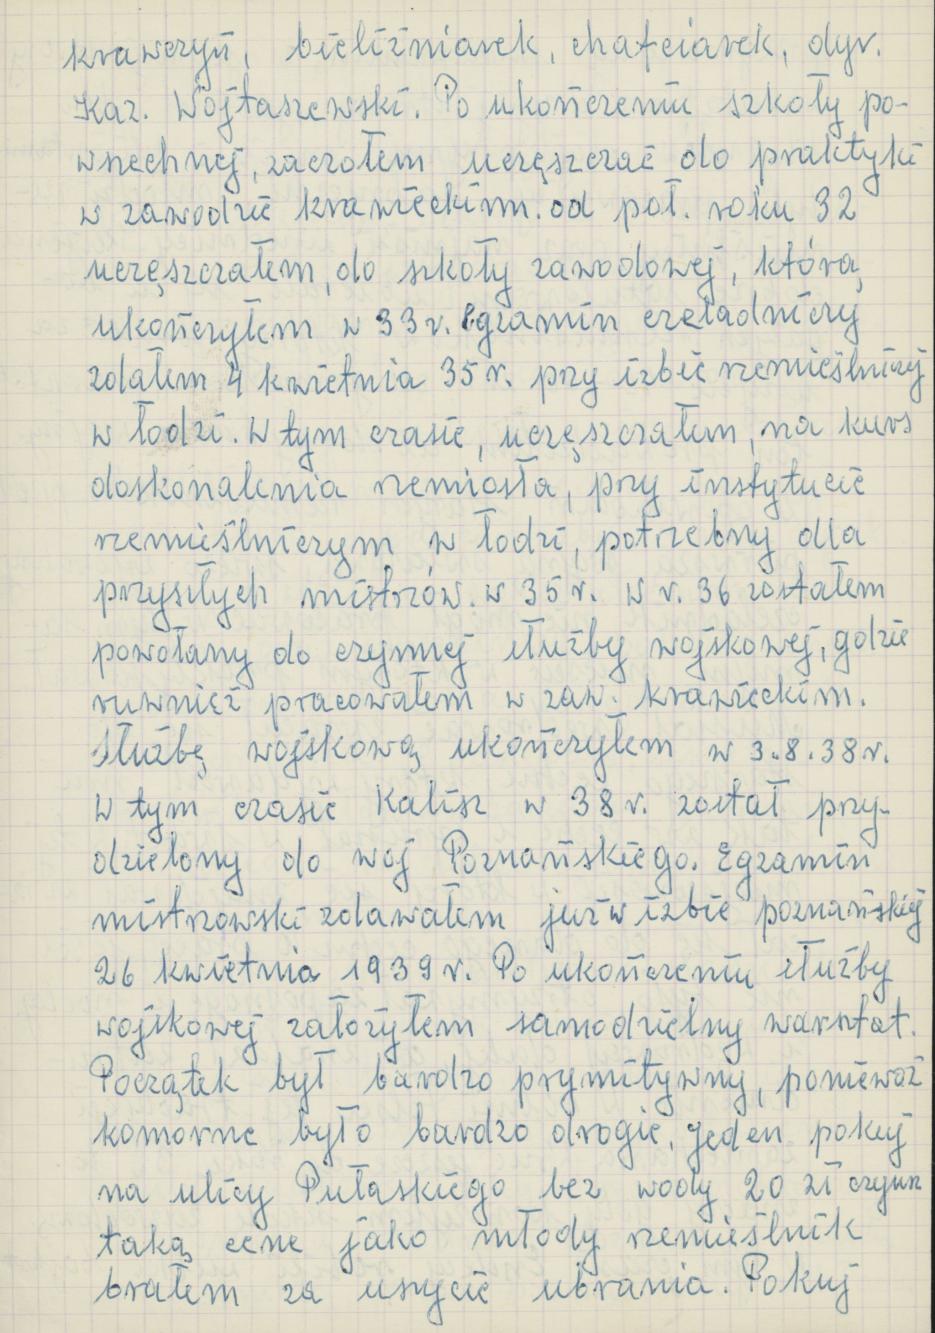 krawczyń, bieliźniarek, chafciarek, dyr.
Kaz. Wojtaszewski. Po ukończeniu szkoły po-
wszechnej, zaczołem uczęszczać do praktyki
w zawodzie krawieckim. od poł. roku 32
uczęszczałem, do szkoły zawodowej, którą
ukończyłem w 33 r. Egzamin czeladniczy
zdałem 4 kwietnia 35 r. przy izbie rzemieślniczej
w Łodzi. W tym czasie, uczęszczałem, na kurs
doskonalenia rzemiosła, przy instytucie
rzemieślniczym w Łodzi, potrzebny dla
przysłych mistrzów. w 35 r. W r. 36 zostałem
powołany do czynnej służby wojskowej, gdzie
ruwnież pracowałem w zaw. krawieckim.
Służbę wojskową ukończyłem w 3.8.38 r.
W tym czasie Kalisz w 38 r. został przy-
dzielony do woj Poznańskiego. Egzamin
mistrzowski zdawałem już w izbie poznańskiej
26 kwietnia 1939 r. Po ukończeniu służby
wojskowej założyłem samodzielny warsztat.
Początek był bardzo prymitywny, ponieważ
komorne było bardzo drogie, jeden pokuj
na ulicy Pułaskiego bez wody 20 zł czynsz
taką cene jako młody rzemieślnik
brałem za uszycie ubrania. Pokuj